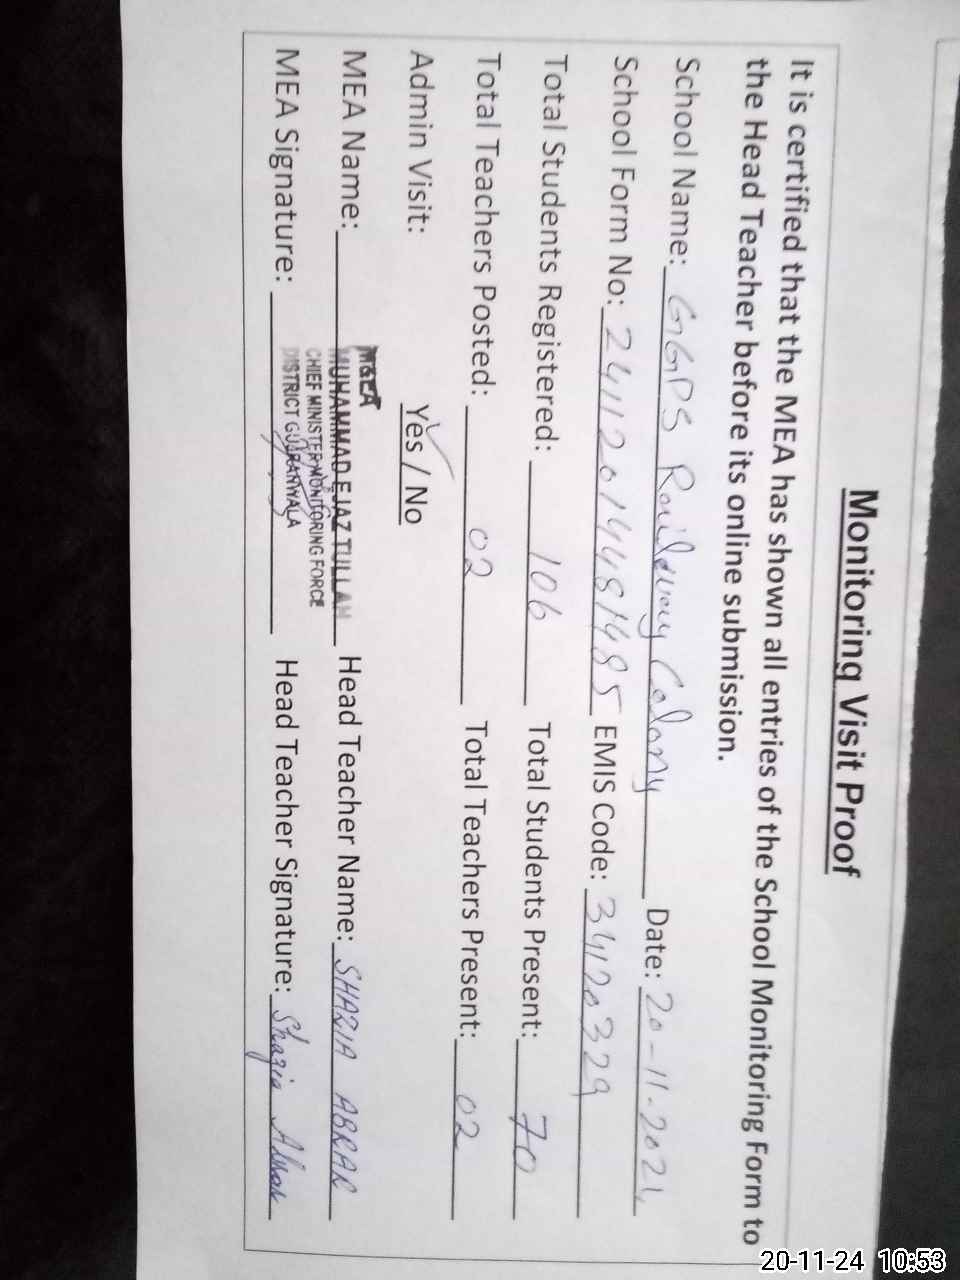 Monitoring Visit Proof
It is certified that the MEA has shown all entries of the School Monitoring Form to
the Head Teacher before its online submission.
School Name: GGPS Railway Colony Date: 20-11-2024
School Form No: 24112014481485 EMIS Code: 34120329
Total Students Registered: 106 Total Students Present: 70
Total Teachers Posted: 02 Total Teachers Present: 02
Admin Visit: Yes / No
M&EA
MEA Name: MUHAMMAD EJAZ TULLAH Head Teacher Name: SHAZIA ABRAR
CHIEF MINISTER MONITORING FORCE
MEA Signature: DISTRICT GUJRANWALA Head Teacher Signature: Shazia Abrar
20-11-24 10:53